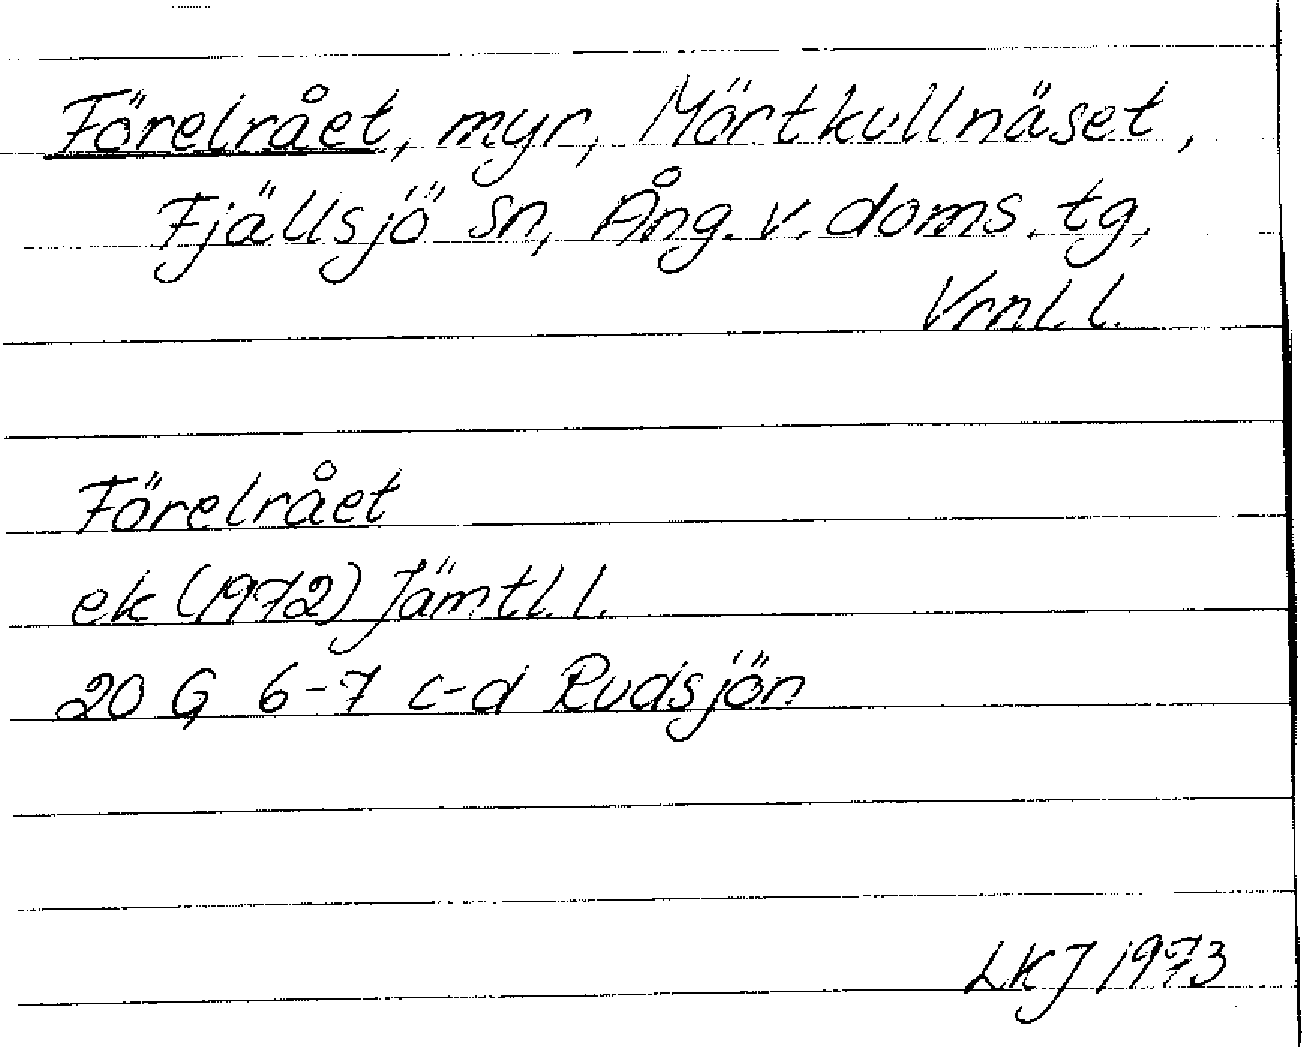 Förelrået, myr, Mörtkullnäset,
Fjällsjö sn, Ång. v. doms. tg,
Vrnl. l.
Förelrået
ek (1972) Jämtl. l.
20 G 6-7 c-d Rudsjön
LKJ 1973